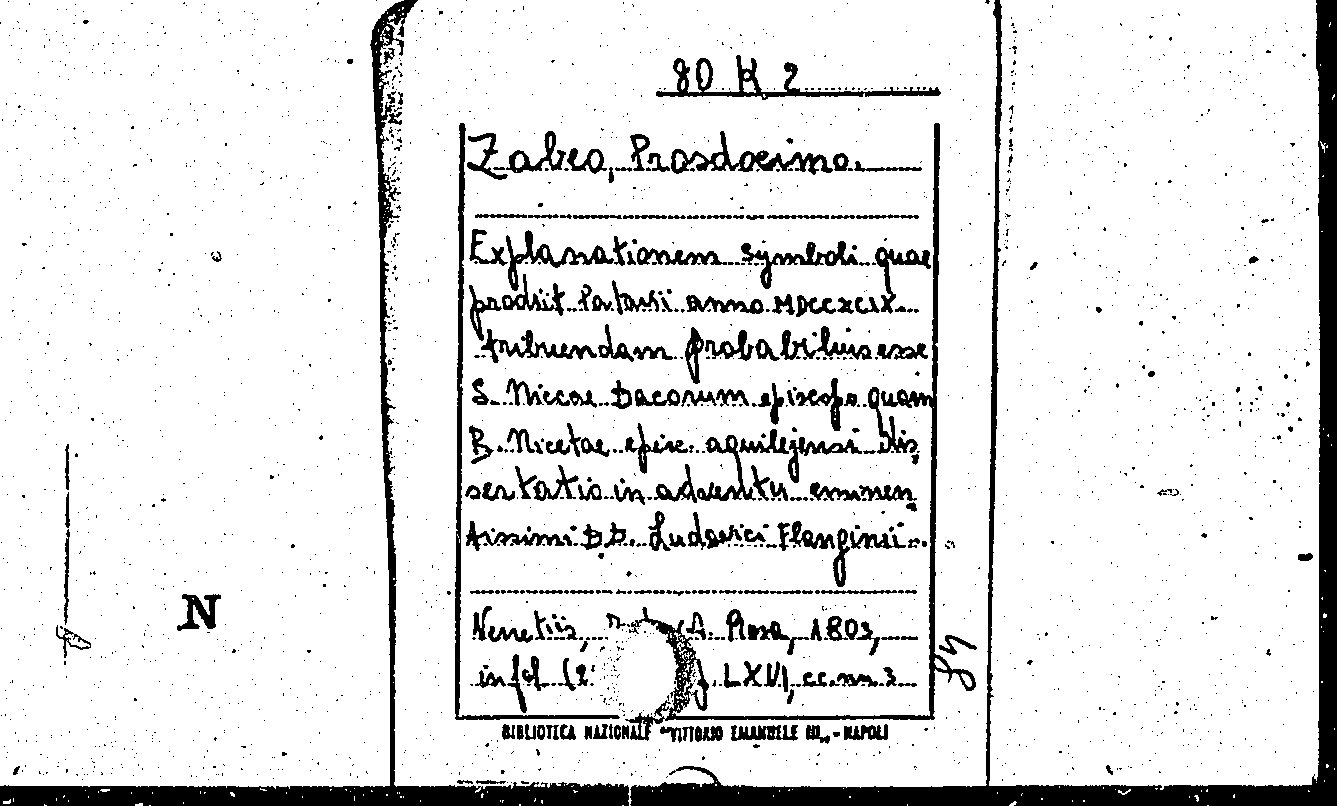 80 K 2
Zabeo, Prosdocimo.
Explanationem symboli quae
prodiit Patavii anno MDCCXCIX
tribuendam probabilius esse
S. Niceae Dacorum episcopo quam
B. Nicetae episc. aquilejensi dis
sertatio in adventu eminen
tissimi DD. Ludovici Flanginii..
Venetiis, A. Rosa, 1803,
in fol (2 LXVI, cc. nn. 3
84
N
BIBLIOTECA NAZIONALE "VITTORIO EMANUELE III" - NAPOLI